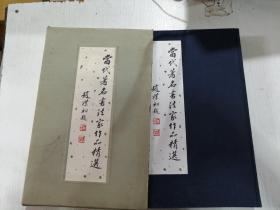 當代著名書法家作品精選
趙樸初題
當代著名書法家作品精選
趙樸初題